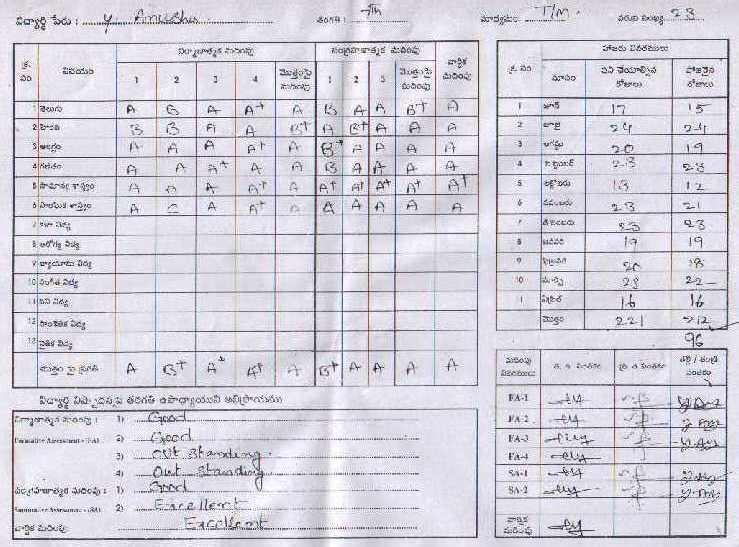 విద్యార్థి పేరు : Y Anusha తరగతి : 7th మాధ్యమం T/M వరుస సంఖ్య 23
క్ర. సం విషయం నిర్మాణాత్మక మదింపు సంగ్రహణాత్మక మదింపు వార్షిక మదింపు
1 2 3 4 మొత్తంపై మదింపు 1 2 3 మొత్తంపై మదింపు
1 తెలుగు A B A A+ A B A A B+ A
2 హిందీ B B A A B+ A B+ A A A
3 ఆంగ్లం A A A A+ A B+ A A A A
4 గణితం A A A+ A A B A A A A
5 సామాన్య శాస్త్రం A A A A+ A A+ A+ A+ A+ A+
6 సాంఘిక శాస్త్రం A C A A+ A A A A A A
7 కళా విద్య
8 ఆరోగ్య విద్య
9 వ్యాయామ విద్య
10 సంగీత విద్య
11 పని విద్య
12 సాంకేతిక విద్య
13 నైతిక విద్య
మొత్తం పై ప్రగతి A B+ A+ A+ A B+ A A A A
హాజరు వివరములు
క్ర. సం మాసం పని చేయాల్సిన రోజులు హాజరైన రోజులు
1 జూన్ 17 15
2 జూలై 24 24
3 ఆగష్టు 20 19
4 సెప్టెంబర్ 23 23
5 అక్టోబరు 13 12
6 నవంబరు 23 21
7 డిసెంబరు 23 23
8 జనవరి 19 19
9 ఫిబ్రవరి 20 18
10 మార్చి 23 22
11 ఏప్రిల్ 16 16
మొత్తం 221 212
96
విద్యార్థి నిష్పాదనపై తరగతి ఉపాధ్యాయుని అభిప్రాయము
నిర్మాణాత్మక మదింపు : 1) Good
Formative Assessment (FA) 2) Good
3) Out Standing
4) Out Standing
సంగ్రహణాత్మక మదింపు : 1) Good
Summative Assessment (SA) 2) Excellent
వార్షిక మదింపు Excellent
మదింపు వివరములు త. ఉ. సంతకం ప్ర. ఉ సంతకం తల్లి / తండ్రి సంతకం
FA-1
FA-2
FA-3
FA-4
SA-1
SA-2
వార్షిక మదింపు